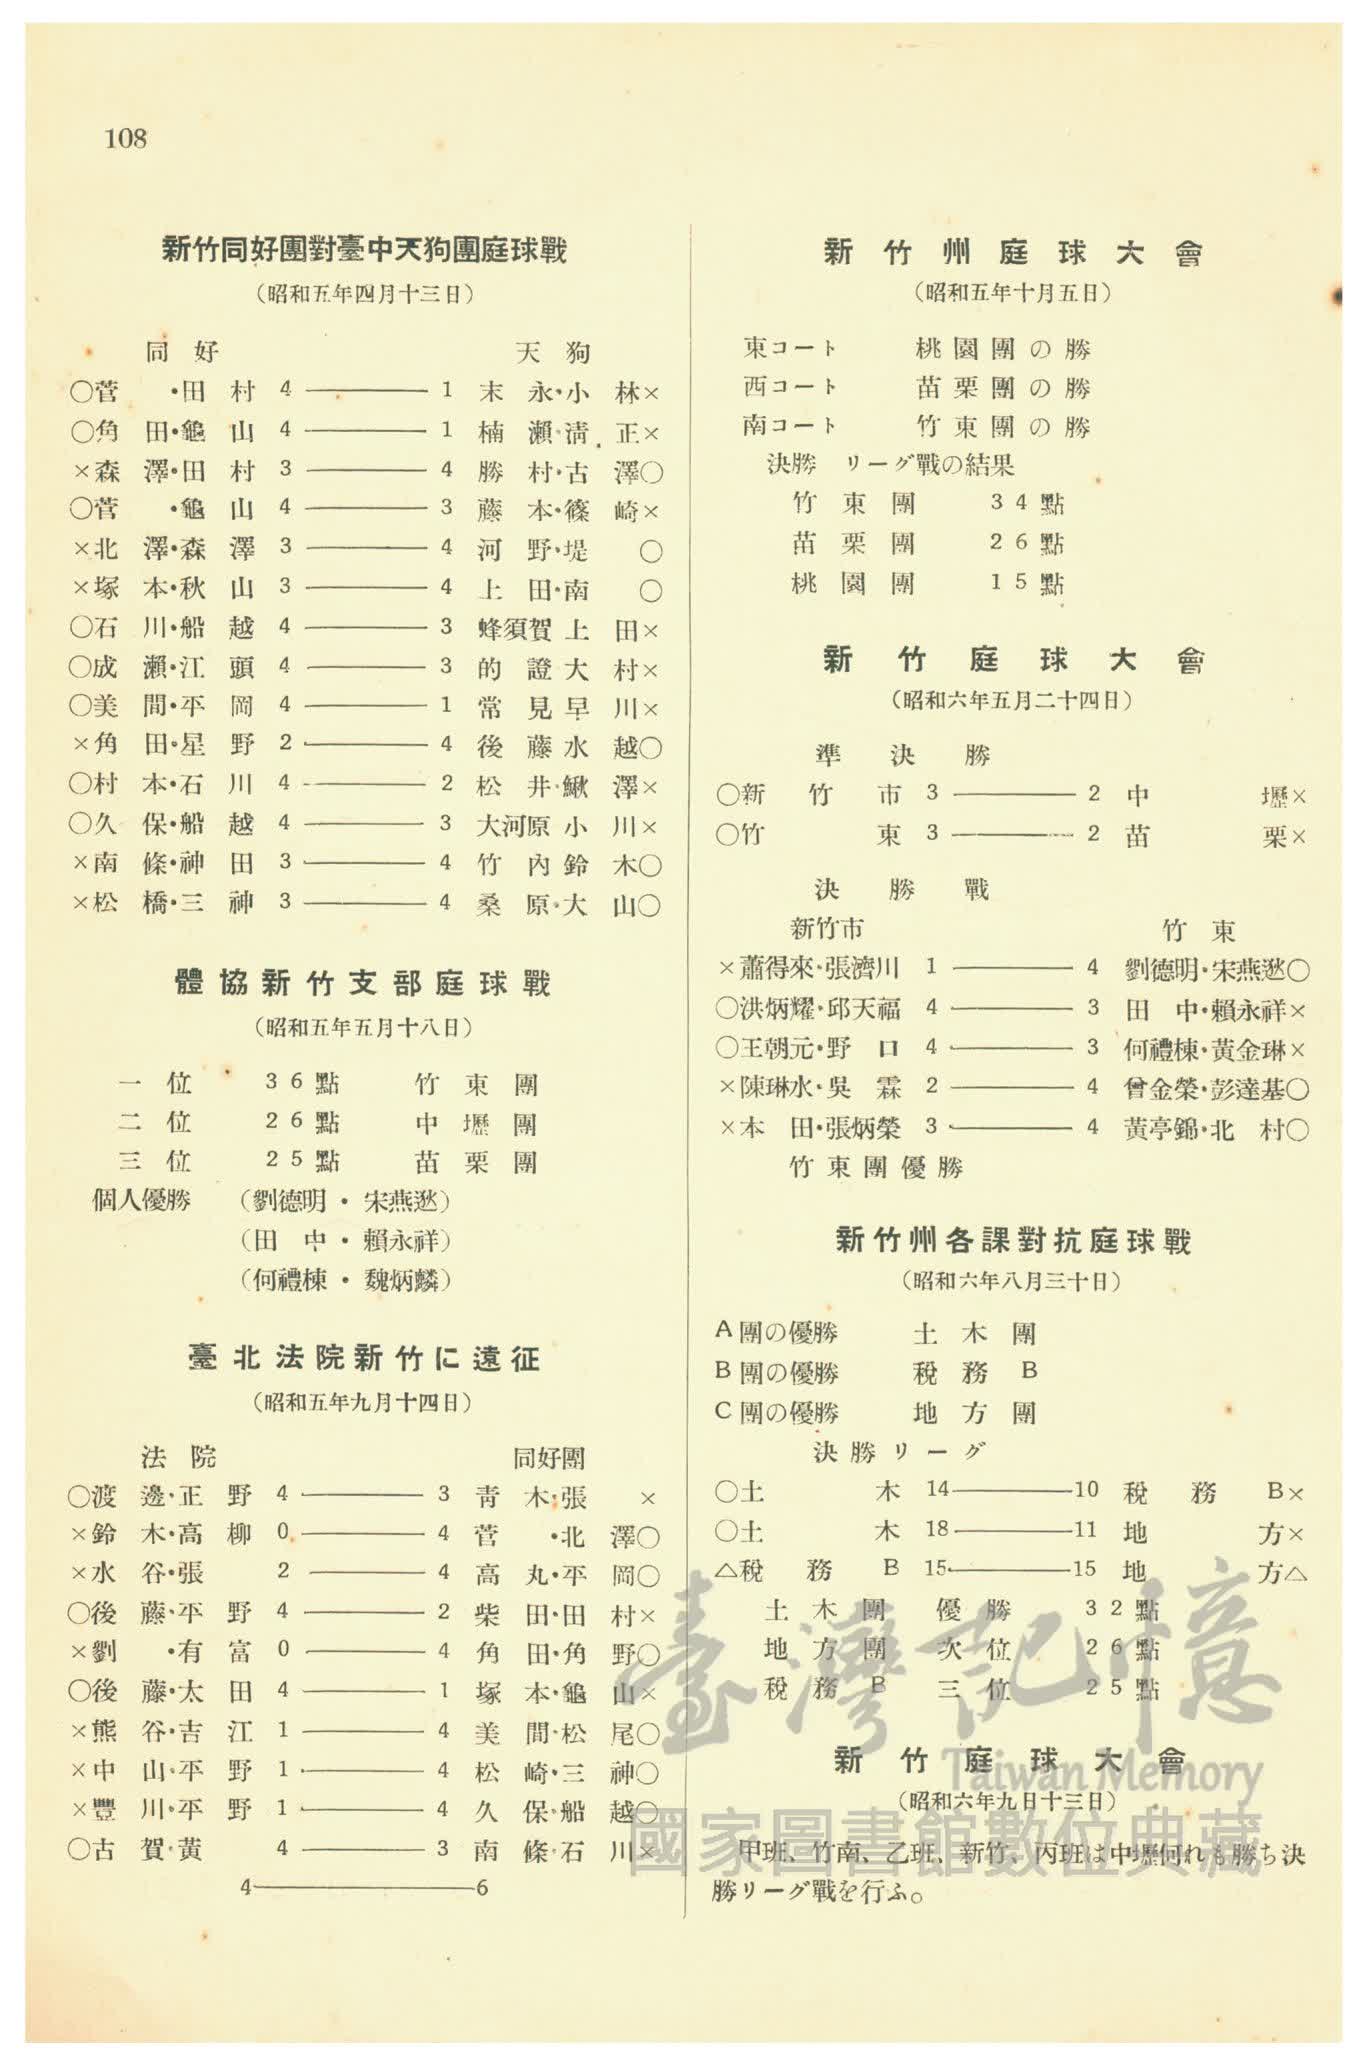 108
新竹同好團對臺中天狗團庭球戰
（昭和五年四月十三日）
同好　天狗
○菅・田村 4 ——— 1 末永・小林×
○角田・龜山 4 ——— 1 楠瀨・淸正×
×森澤・田村 3 ——— 4 勝村・古澤○
○菅・龜山 4 ——— 3 藤本・篠崎×
×北澤・森澤 3 ——— 4 河野・堤○
×塚本・秋山 3 ——— 4 上田・南○
○石川・船越 4 ——— 3 蜂須賀上田×
○成瀨・江頭 4 ——— 3 的證大村×
○美間・平岡 4 ——— 1 常見早川×
×角田・星野 2 ——— 4 後藤水越○
○村本・石川 4 ——— 2 松井・鰍澤×
○久保・船越 4 ——— 3 大河原小川×
×南條・神田 3 ——— 4 竹內鈴木○
×松橋・三神 3 ——— 4 桑原・大山○
體協新竹支部庭球戰
（昭和五年五月十八日）
一位　36點　竹東團
二位　26點　中壢團
三位　25點　苗栗團
個人優勝　（劉德明・宋燕逖）
（田中・賴永祥）
（何禮棟・魏炳麟）
臺北法院新竹に遠征
（昭和五年九月十四日）
法院　同好團
○渡邊・正野 4 ——— 3 靑木・張×
×鈴木・高柳 0 ——— 4 菅・北澤○
×水谷・張 2 ——— 4 高丸・平岡○
○後藤・平野 4 ——— 2 柴田・田村×
×劉・有富 0 ——— 4 角田・角野○
○後藤・太田 4 ——— 1 塚本・龜山×
×熊谷・吉江 1 ——— 4 美間・松尾○
×中山・平野 1 ——— 4 松崎・三神○
×豐川・平野 1 ——— 4 久保・船越○
○古賀・黃 4 ——— 3 南條・石川×
4 ——— 6
新竹州庭球大會
（昭和五年十月五日）
東コート　桃園團の勝
西コート　苗栗團の勝
南コート　竹東團の勝
決勝　リーグ戰の結果
竹東團　34點
苗栗團　26點
桃園團　15點
新竹庭球大會
（昭和六年五月二十四日）
準決勝
○新竹市 3 ——— 2 中壢×
○竹東 3 ——— 2 苗栗×
決勝戰
新竹市　竹東
×蕭得來・張濟川 1 ——— 4 劉德明・宋燕逖○
○洪炳耀・邱天福 4 ——— 3 田中・賴永祥×
○王朝元・野口 4 ——— 3 何禮棟・黃金琳×
×陳琳水・吳霖 2 ——— 4 曾金榮・彭達基○
×本田・張炳榮 3 ——— 4 黃亭錦・北村○
竹東團優勝
新竹州各課對抗庭球戰
（昭和六年八月三十日）
A團の優勝　土木團
B團の優勝　稅務B
C團の優勝　地方團
決勝リーグ
○土木 14 ——— 10 稅務B×
○土木 18 ——— 11 地方×
△稅務B 15 ——— 15 地方△
土木團　優勝　32點
地方團　次位　26點
稅務B　三位　25點
新竹庭球大會
（昭和六年九日十三日）
甲班、竹南、乙班、新竹、丙班は中壢何れも勝ち決
勝リーグ戰を行ふ。
臺灣記憶
Taiwan Memory
國家圖書館數位典藏